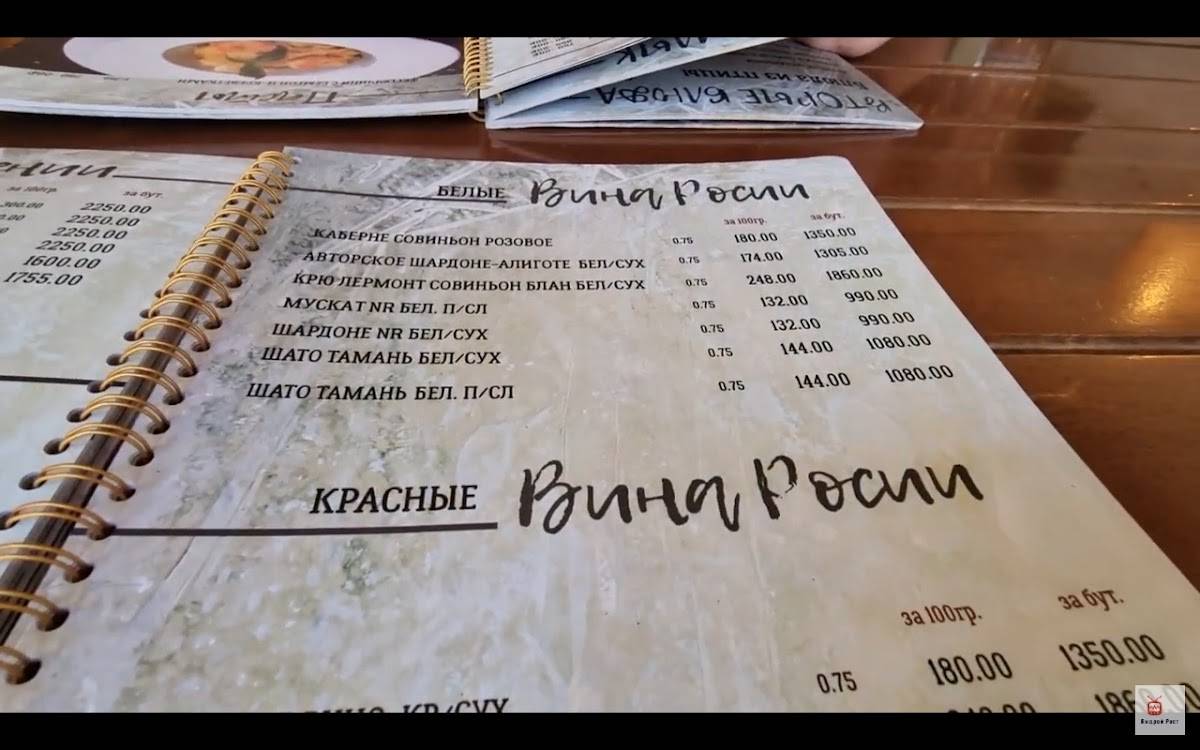 Паста
ВТОРЫЕ БЛЮДА
БЛЮДА ИЗ ПТИЦЫ
за 100гр. за бут.
300.00 2250.00
2250.00
2250.00
2250.00
1600.00
1755.00
БЕЛЫЕ Вина Росии
за 100гр. за бут.
КАБЕРНЕ СОВИНЬОН РОЗОВОЕ 0.75 180.00 1350.00
АВТОРСКОЕ ШАРДОНЕ-АЛИГОТЕ БЕЛ/СУХ 0.75 174.00 1305.00
КРЮ ЛЕРМОНТ СОВИНЬОН БЛАН БЕЛ/СУХ 0.75 248.00 1860.00
МУСКАТ NR БЕЛ. П/СЛ 0.75 132.00 990.00
ШАРДОНЕ NR БЕЛ/СУХ 0.75 132.00 990.00
ШАТО ТАМАНЬ БЕЛ/СУХ 0.75 144.00 1080.00
ШАТО ТАМАНЬ БЕЛ. П/СЛ 0.75 144.00 1080.00
КРАСНЫЕ Вина Росии
за 100гр. за бут.
0.75 180.00 1350.00
КР/СУХ
Выдрой Рест